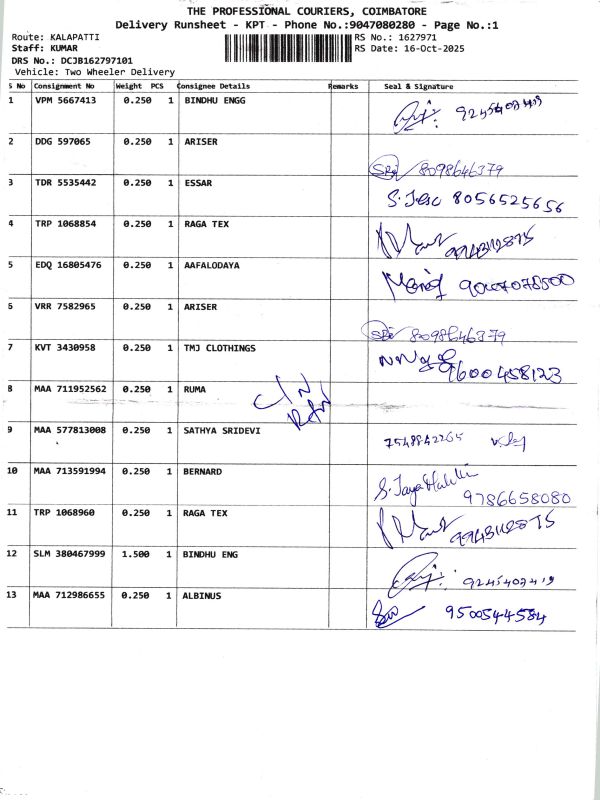 THE PROFESSIONAL COURIERS, COIMBATORE
Delivery Runsheet - KPT - Phone No.:9047080280 - Page No.:1
Route: KALAPATTI RS No.: 1627971
Staff: KUMAR RS Date: 16-Oct-2025
DRS No.: DCJB162797101
Vehicle: Two Wheeler Delivery
S No Consignment No Weight PCS Consignee Details Remarks Seal & Signature
1 VPM 5667413 0.250 1 BINDHU ENGG
2 DDG 597065 0.250 1 ARISER 8098646379
3 TDR 5535442 0.250 1 ESSAR 8056525656
4 TRP 1068854 0.250 1 RAGA TEX
5 EDQ 16805476 0.250 1 AAFALODAYA
6 VRR 7582965 0.250 1 ARISER 8098646379
7 KVT 3430958 0.250 1 TMJ CLOTHINGS 9600458123
8 MAA 711952562 0.250 1 RUMA
9 MAA 577813008 0.250 1 SATHYA SRIDEVI
10 MAA 713591994 0.250 1 BERNARD 9786658080
11 TRP 1068960 0.250 1 RAGA TEX
12 SLM 380467999 1.500 1 BINDHU ENG
13 MAA 712986655 0.250 1 ALBINUS 9500544584